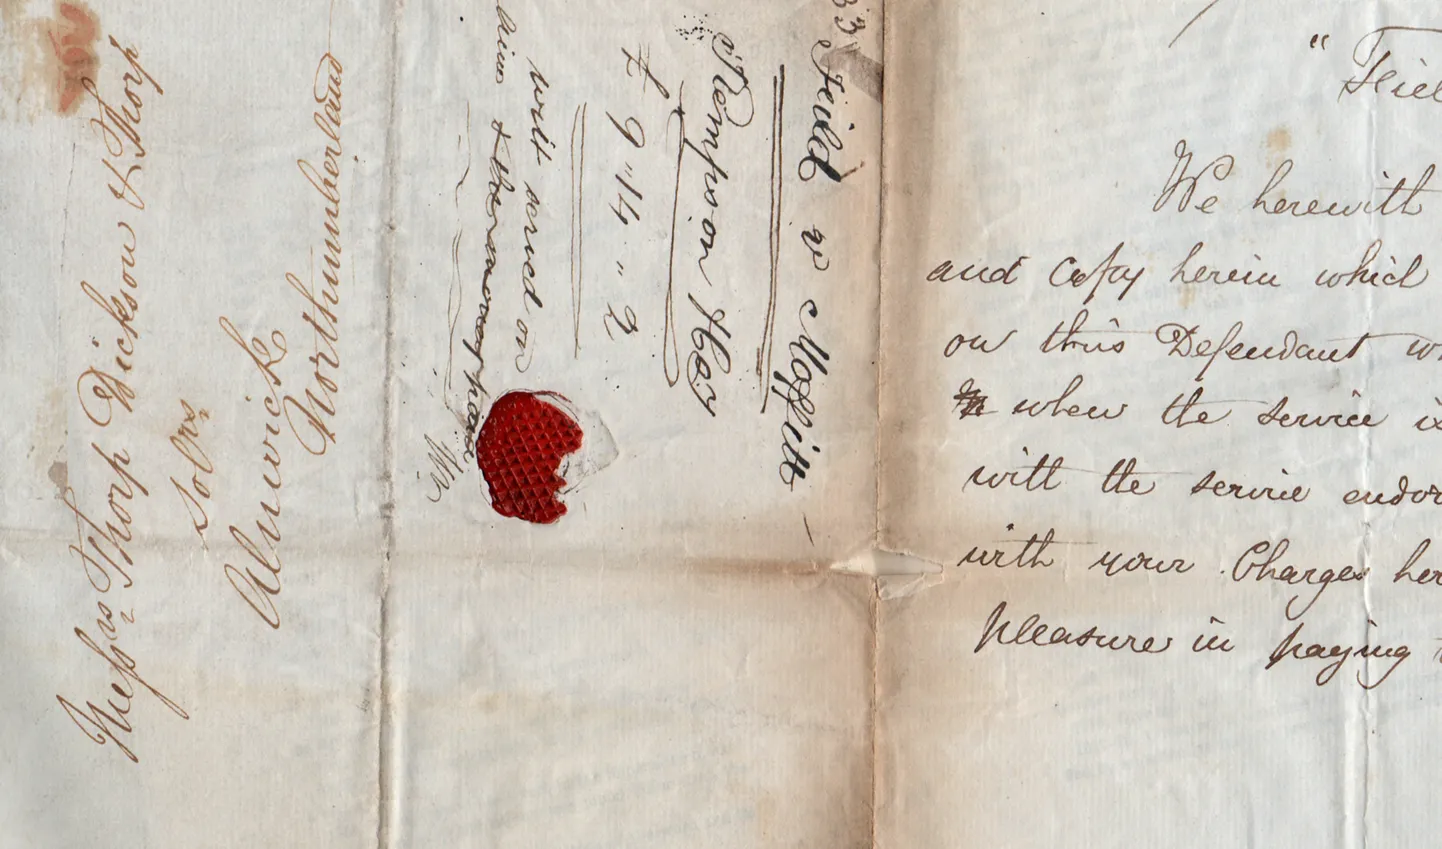 Messrs Thorp Dickson & Thorp
Solrs
Alnwick
Northumberland
33
Feild v Moffitt
Thompson & Hay
£ 9 " 14 " 2
writ served on
"Feil
We herewith
and Copy herein which
on this Defendant w
when the service is
with the service endor
with your Charges her
pleasure in paying